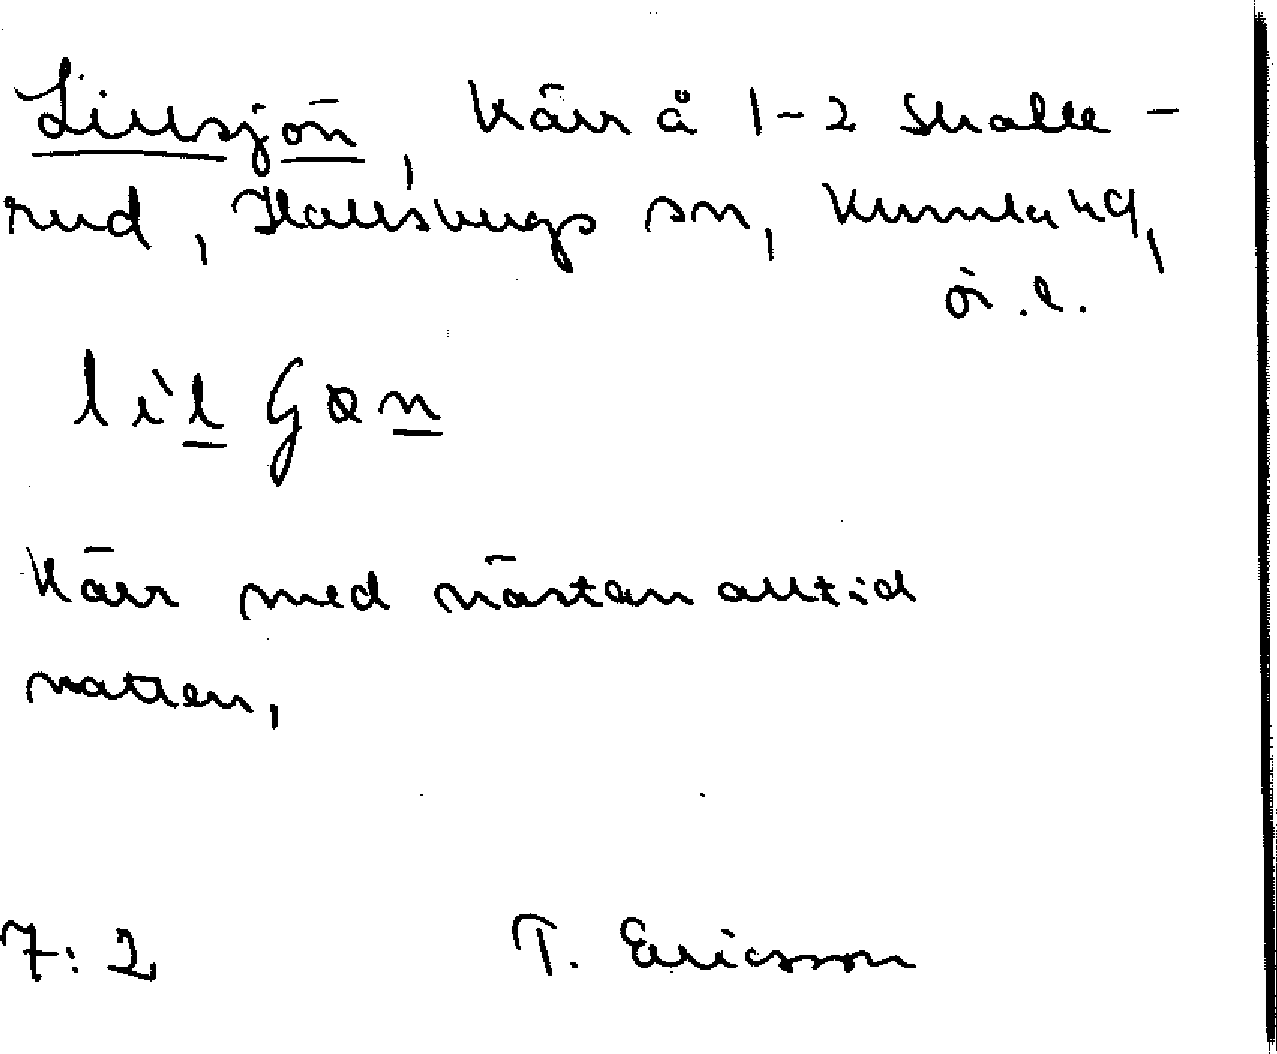 Lillsjön, kärr å 1-2 Skalle-
rud, Hallsbergs sn, Kumla hd,
ör. l.
kärr med nästan alltid
vatten,
7:2 T. Ericsson